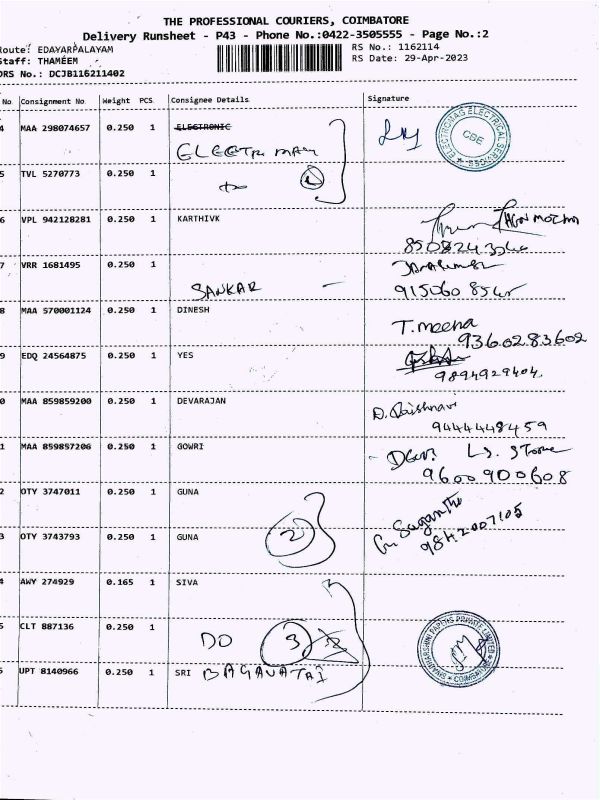 THE PROFESSIONAL COURIERS, COIMBATORE
Delivery Runsheet - P43 - Phone No.:0422-3505555 - Page No.:2
Route: EDAYARPALAYAM
RS No.: 1162114
Staff: THAMEEM
RS Date: 29-Apr-2023
DRS No.: DCJB116211402
No Consignment No Weight PCS Consignee Details Signature
4 MAA 298074657 0.250 1 ELECTRONIC
ELECTROMAG ELECTRICAL SERVICES
CBE
5 TVL 5270773 0.250 1
2
6 VPL 942128281 0.250 1 KARTHIVK
7 VRR 1681495 0.250 1
SANKAR
8 MAA 570001124 0.250 1 DINESH
T. meena
9360283602
9 EDQ 24564875 0.250 1 YES
9894929404
0 MAA 859859200 0.250 1 DEVARAJAN
9444448459
1 MAA 859857206 0.250 1 GOWRI
9600900608
2 OTY 3747011 0.250 1 GUNA
3 OTY 3743793 0.250 1 GUNA
2
9842007105
4 AWY 274929 0.165 1 SIVA
5 CLT 887136 0.250 1
DO 3
6 UPT 8140966 0.250 1 SRI BAGAVATHI